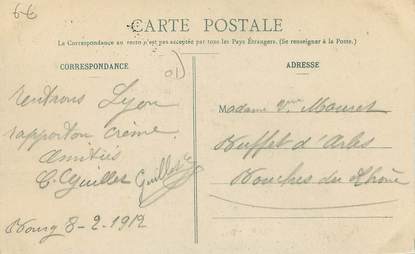 6€
CARTE POSTALE
La Correspondance au recto n'est pas acceptée par tous les Pays Étrangers. (Se renseigner à la Poste.)
CORRESPONDANCE
ADRESSE
rentrons Lyon
rapporton crème
amitiés
C. Guillet
Bourg 8-2-1912
Madame Vve Mauret
Buffet d'Arles
Bouches du Rhône